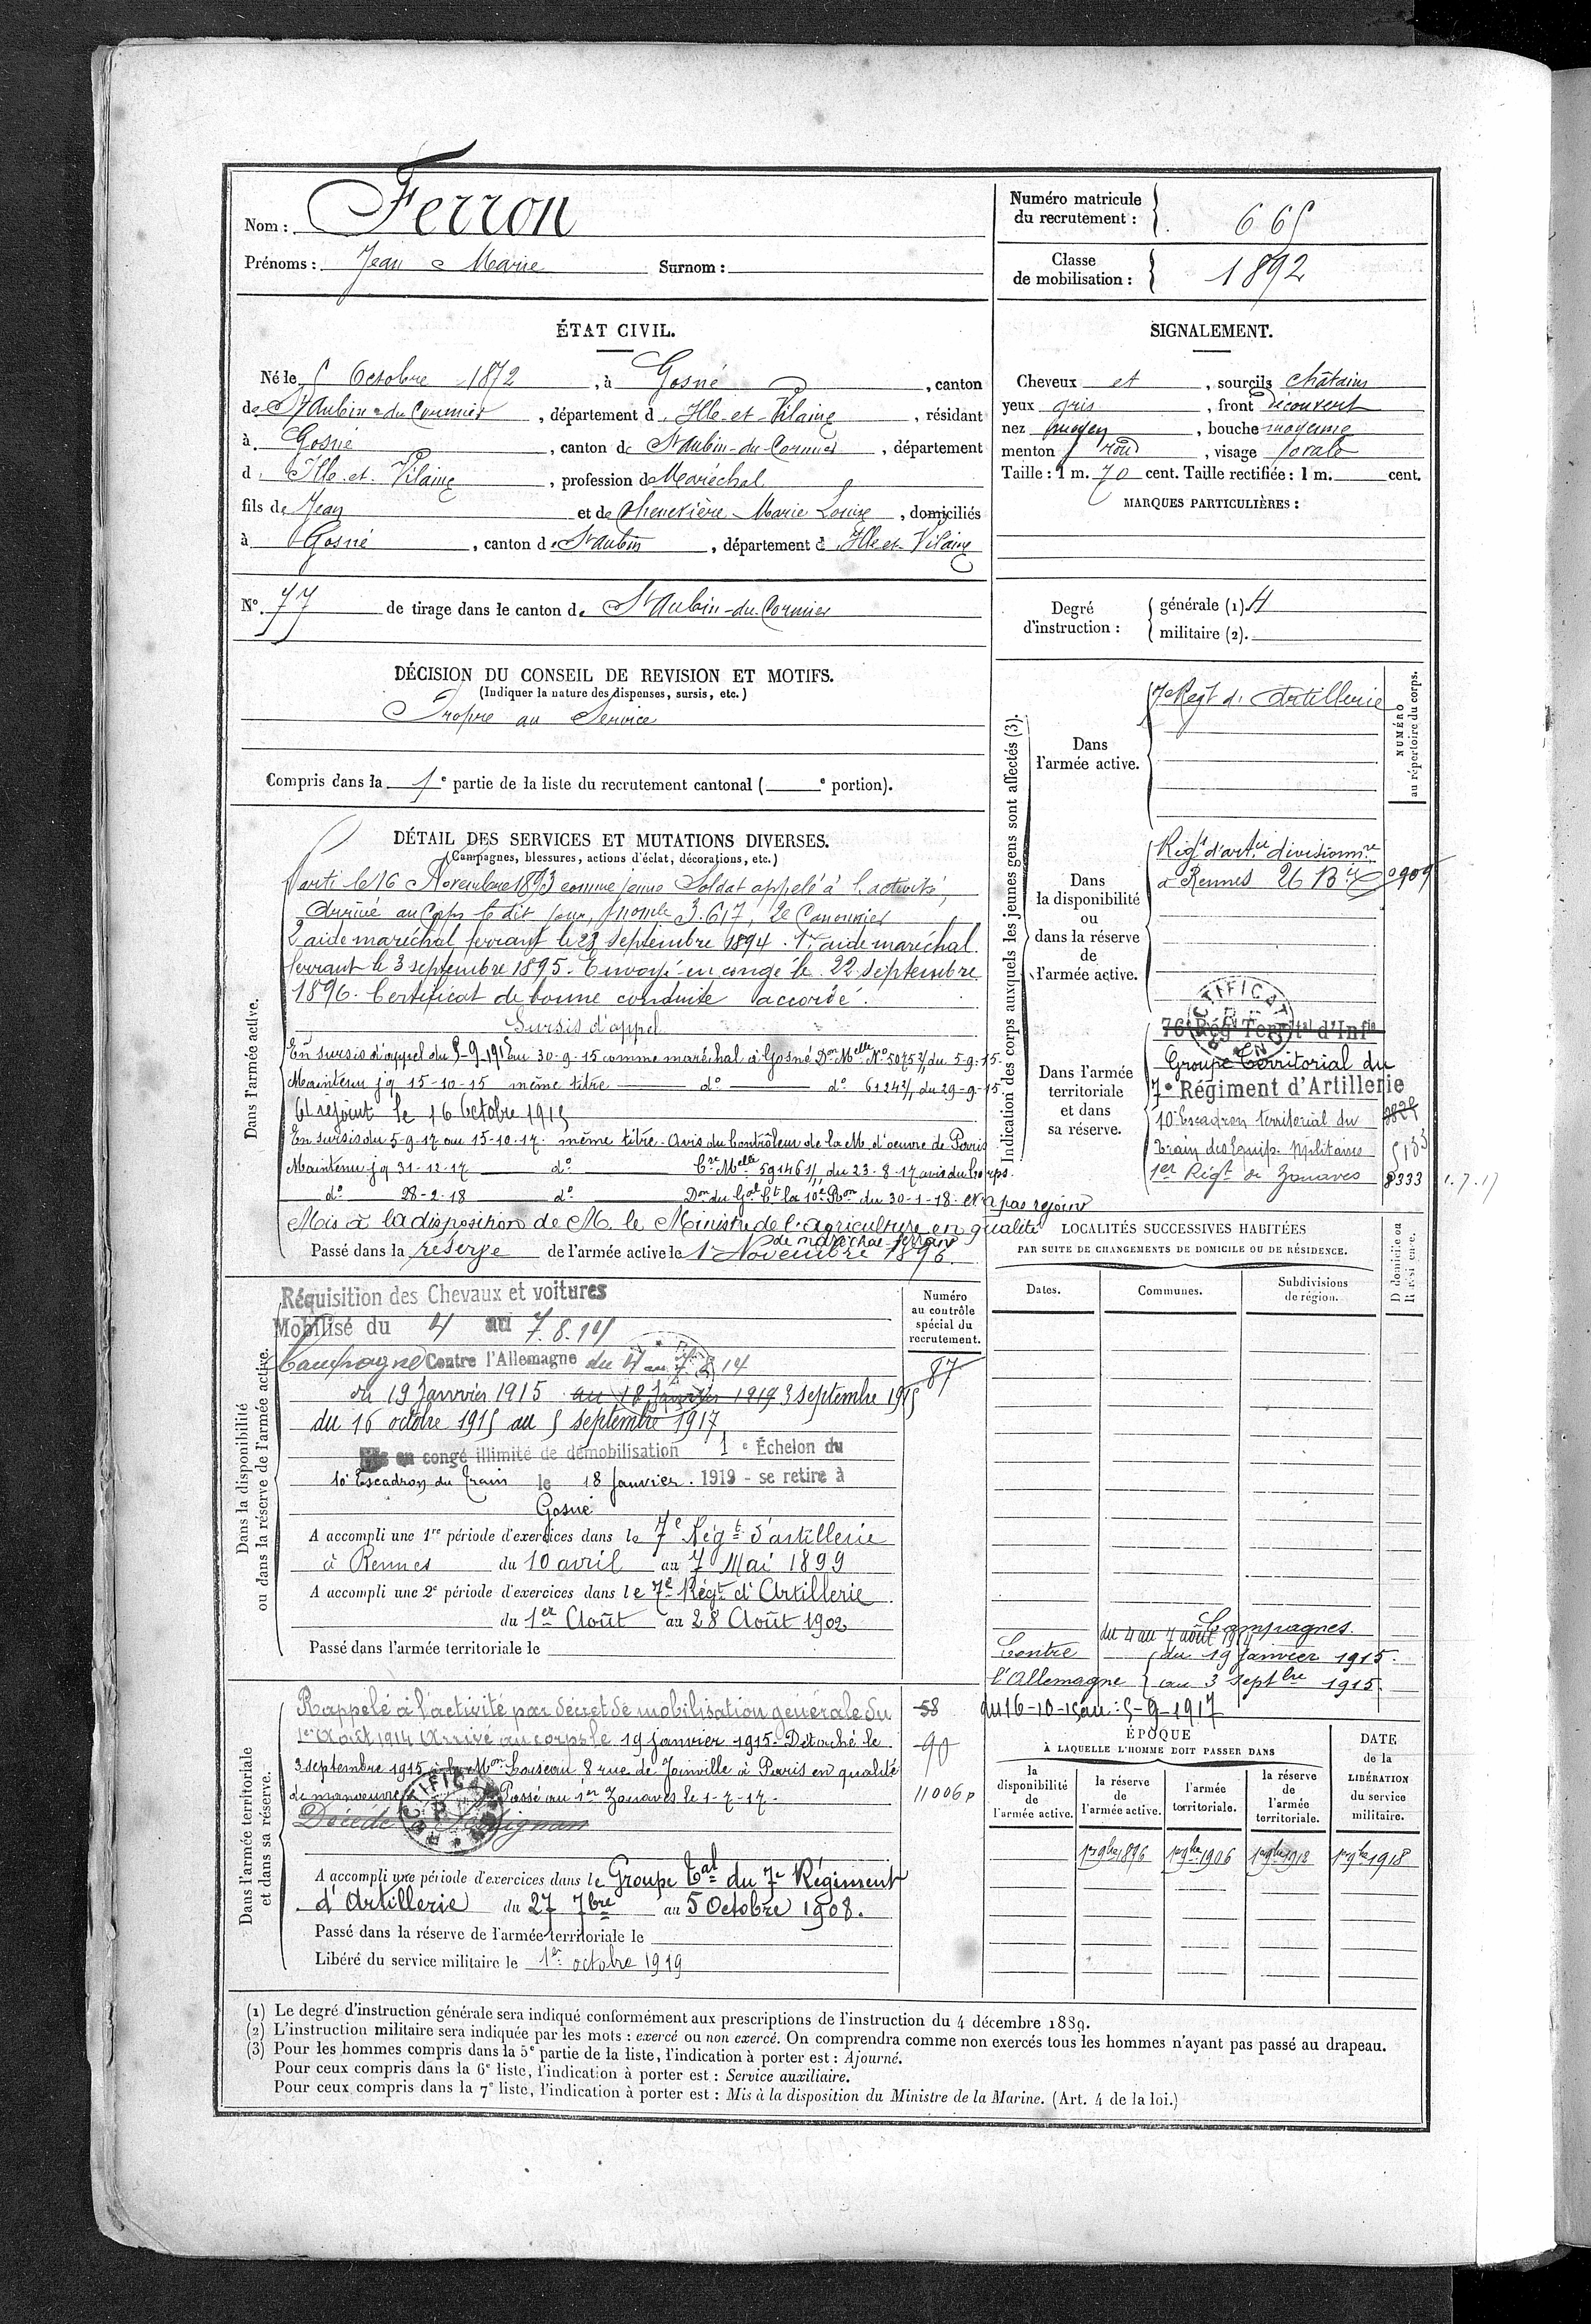 Nom : Ferron
Prénoms : Jean Marie Surnom :
Numéro matricule
du recrutement : 665
Classe
de mobilisation : 1892
ÉTAT CIVIL.
Né le 5 Octobre 1872, à Gosné, canton
de St Aubin-du-Cormier, département d Ille-et-Vilaine, résidant
à Gosné, canton de St Aubin-du-Cormier, département
d Ille-et-Vilaine, profession de Maréchal
fils de Jean et de Chenevière Marie Louise, domiciliés
à Gosné, canton de St Aubin, département d Ille-et-Vilaine
N° 77 de tirage dans le canton de St Aubin-du-Cormier
SIGNALEMENT.
Cheveux et, sourcils châtains
yeux gris, front découvert
nez moyen, bouche moyenne
menton rond, visage ovale
Taille : 1 m. 70 cent. Taille rectifiée : 1 m. cent.
MARQUES PARTICULIÈRES :
Degré
d'instruction :
générale (1) 4
militaire (2).
DÉCISION DU CONSEIL DE REVISION ET MOTIFS.
(Indiquer la nature des dispenses, sursis, etc.)
Propre au Service
Compris dans la 1e partie de la liste du recrutement cantonal ( e portion).
DÉTAIL DES SERVICES ET MUTATIONS DIVERSES.
(Campagnes, blessures, actions d'éclat, décorations, etc.)
Dans l'armée active.
Parti le 16 Novembre 1893 comme jeune Soldat appelé à l'activité,
Arrivé au Corps le dit jour, 3.617, 2e Canonnier
2 aide maréchal ferrant le 23 septembre 1894. 1er aide maréchal
ferrant le 3 septembre 1895. Envoyé en congé le 22 septembre
1896. Certificat de bonne conduite accordé.
Sursis d'appel
En sursis d'appel du 5-9-1915 au 30-9-15 comme maréchal à Gosné Don Melle No 50757 du 5-9-15.
Maintenu jq 15-10-15 même titre do do 6124 du 29-9-15.
A rejoint le 16 Octobre 1915
En sursis du 5-9-17 au 15-10-17. même titre. Avis du Contrôleur de la M. d'oeuvre de Paris
Maintenu jq 31-12-17 do Cre Melle 59146 du 23-8-17 avis du Corps.
do 28-2-18 do Don du Gal Ct la 10e Ron du 30-1-18. et n'a pas rejoint
Mis à la disposition de M. le Ministre de l'agriculture en qualité
de maréchal-ferrant
Passé dans la réserve de l'armée active le 1er Novembre 1896.
Indication des corps auxquels les jeunes gens sont affectés (3).
NUMÉRO
au répertoire du corps.
Dans
l'armée active.
7e Regt d'Artillerie
Dans
la disponibilité
ou
dans la réserve
de
l'armée active.
Rigt d'artie divisionnre
à Rennes 26 Bie 909
Dans l'armée
territoriale
et dans
sa réserve.
76e Rég Territal d'Infie
Groupe Territorial du
7e Régiment d'Artillerie
10e Escadron territorial du
Train des Equip. Militaires 5103
1er Régt de Zouaves 8333 1.7.17
LOCALITÉS SUCCESSIVES HABITÉES
PAR SUITE DE CHANGEMENTS DE DOMICILE OU DE RÉSIDENCE.
Dates.
Communes.
Subdivisions
de région.
Domicile ou
Résidence.
Dans la disponibilité
ou dans la réserve de l'armée active.
Numéro
au contrôle
spécial du
recrutement.
87
Réquisition des Chevaux et voitures
Mobilisé du 4 au 7.8.14
Campagne Contre l'Allemagne du 4 au 7 8 14
du 19 Janvier 1915 au 18 Janvier 1919 3 septembre 1915
du 16 octobre 1915 au 5 septembre 1917
Mis en congé illimité de démobilisation 1e Échelon du
10e Escadron du Train le 18 Janvier. 1919 - se retire à
Gosné
A accompli une 1re période d'exercices dans le 7e Régt d'artillerie
à Rennes du 10 avril au 7 Mai 1899
A accompli une 2e période d'exercices dans le 7e Régt d'Artillerie
du 1er Août au 28 Août 1902
Passé dans l'armée territoriale le
Campagnes.
du 4 au 7 août 1914
Contre du 19 Janvier 1915.
l'Allemagne au 3 septbre 1915
du 16-10-15 au : 5-9-1917
Dans l'armée territoriale
et dans sa réserve.
Rappelé à l'activité par décret de mobilisation générale du
1er Août 1914 Arrivé au corps le 19 janvier 1915. Détaché le
3 septembre 1915 à la Mon 8 rue de Joinville à Paris en qualité
de manoeuvre Passé au 1er Zouaves le 1-7-17.
58
90
11006 p
A accompli une période d'exercices dans le Groupe Tal du 7e Régiment
d'Artillerie du 27 7bre au 5 Octobre 1908.
Passé dans la réserve de l'armée territoriale le
Libéré du service militaire le 1er octobre 1919
ÉPOQUE
À LAQUELLE L'HOMME DOIT PASSER DANS
la
disponibilité
de
l'armée active.
la réserve
de
l'armée active.
l'armée
territoriale.
la réserve
de
l'armée
territoriale.
DATE
de la
LIBÉRATION
du service
militaire.
1er 9bre 1896 1er 9bre 1906 1er 9bre 1912 1er 9bre 1918
(1) Le degré d'instruction générale sera indiqué conformément aux prescriptions de l'instruction du 4 décembre 1889.
(2) L'instruction militaire sera indiquée par les mots : exercé ou non exercé. On comprendra comme non exercés tous les hommes n'ayant pas passé au drapeau.
(3) Pour les hommes compris dans la 5e partie de la liste, l'indication à porter est : Ajourné.
Pour ceux compris dans la 6e liste, l'indication à porter est : Service auxiliaire.
Pour ceux compris dans la 7e liste, l'indication à porter est : Mis à la disposition du Ministre de la Marine. (Art. 4 de la loi.)